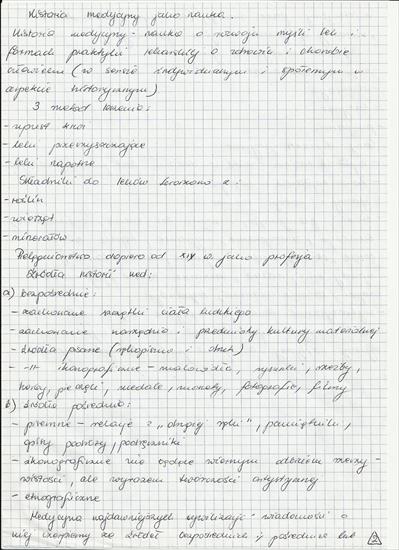 Historia medycyny jako nauka.
Historia medycyny - nauka o rozwoju myśli lek. i
formach praktyki lekarskiej o zdrowiu i chorobie
człowieka (w sensie indywidualnym i społecznym w
aspekcie historycznym)
3 metody leczenia:
- upust krwi
- leki przeczyszczające
- leki napotne
Składniki do leków czerpano z:
- roślin
- zwierząt
- minerałów
Pielęgniarstwo dopiero od XIX w. jako profesja
Źródła historii med:
a) bezpośrednie:
- zachowane szczątki ciała ludzkiego
- zachowane narzędzia i przedmioty kultury materialnej
- źródła pisane (rękopisy i druk)
- -||- ikonograficzne - malowidła, rysunki, rzeźby,
pieczęci, medale, monety, fotografie, filmy
b) źródła pośrednie:
- pisemne - relacje z "drugiej ręki", pamiętniki,
opisy podróży, podręczniki
- ikonograficzne nie będące wiernym odbiciem rzeczy-
wistości, ale wyrazem twórczości artystycznej
- etnograficzne
Medycyna najdawniejszych cywilizacji - wiadomości o
niej czerpiemy ze źródeł bezpośrednich i pośrednich